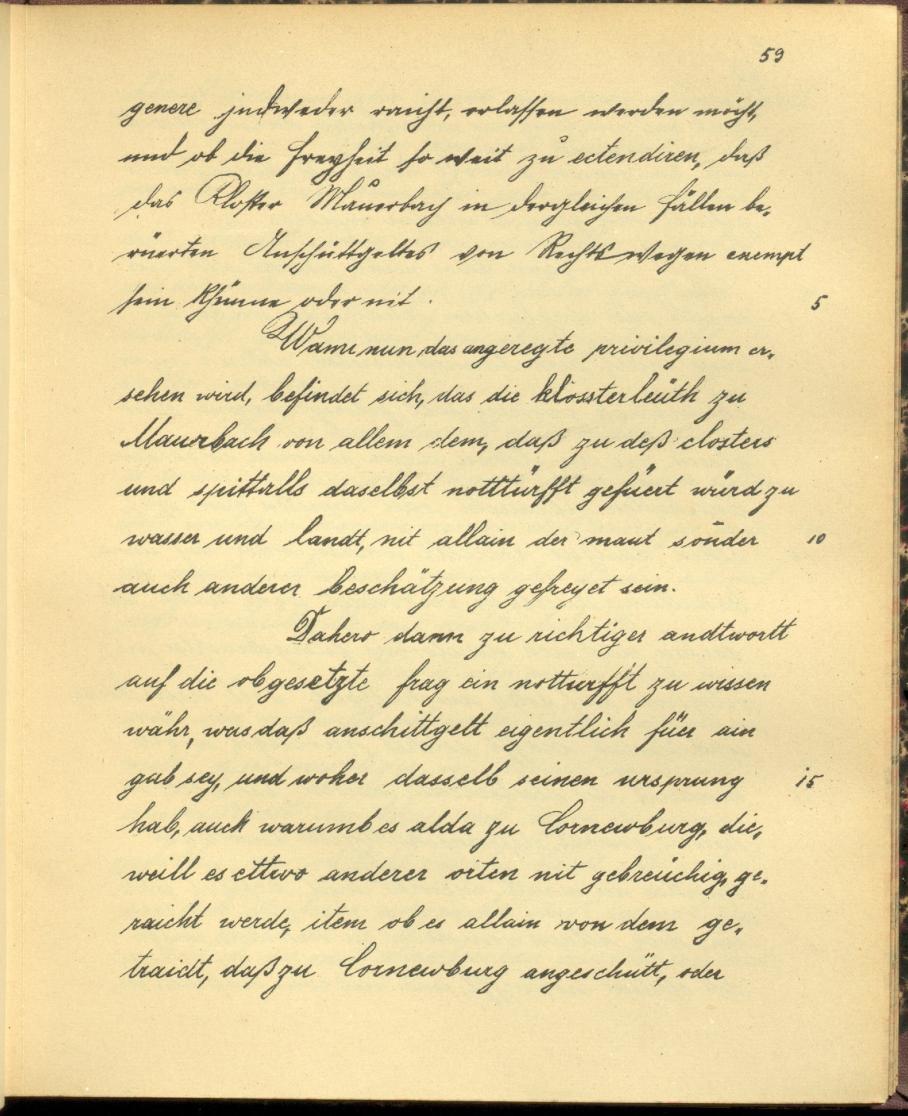 59
genere jedweder raicht, erlassen werden möcht,
und ob die Freyheit so weit zu ectendiren, daß
das Kloster Mauerbach in dergleichen Fällen be„
rüerten Anschüttgeltes von Rechts wegen exempt
sein khünne oder nit.
5
Wann nun das angeregte privilegium er„
sehen wird, befindet sich, das die klossterleüth zu
Maurbach von allem dem, daß zu deß closters
und spittalls daselbst nottturfft gefüert würd zu
wasser und landt, nit allain der maut sonder
10
auch anderer beschätzung gefreyet sein.
Dahero dann zu richtiger andtwortt
auf die obgesetzte frag ein notturfft zu wissen
währ, was daß anschittgelt eigentlich füer ain
gab sey, und woher dasselb seinen ursprung
15
hab, auch warumb es alda zu Cornewburg, die„
weill es ettwo anderer orten nit gebreüchig, ge„
raicht werde, item ob es allain von dem ge„
traidt, daß zu Cornewburg angeschütt, oder